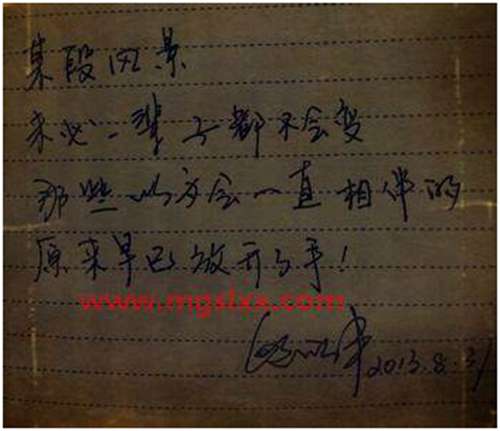 某段风景
未必一辈子都不会变
那些以为会一直相伴的
原来早已放开了手！
www.mgslxx.com
2013.8.31